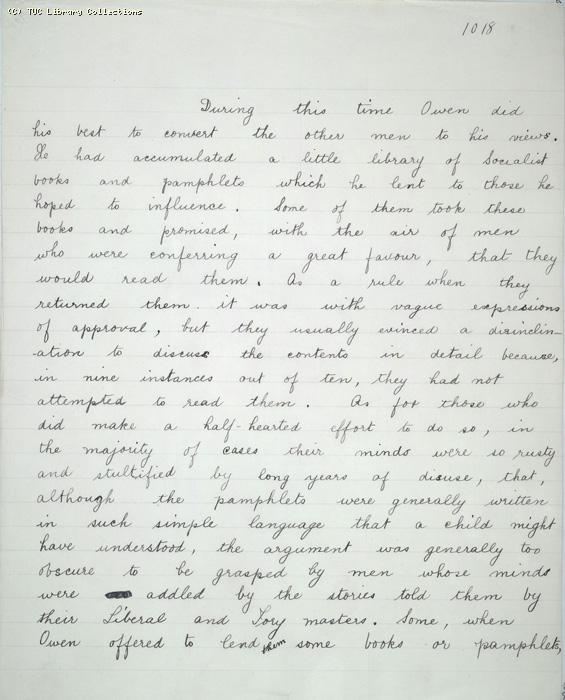 (C) TUC Library Collections
1018
During this time Owen did
his best to convert the other men to his views.
He had accumulated a little library of Socialist
books and pamphlets which he lent to those he
hoped to influence. Some of them took these
books and promised, with the air of men
who were conferring a great favour, that they
would read them. As a rule when they
returned them. it was with vague expressions
of approval, but they usually evinced a disinclin-
ation to discuss the contents in detail because,
in nine instances out of ten, they had not
attempted to read them. As for those who
did make a half-hearted effort to do so, in
the majority of cases their minds were so rusty
and stultified by long years of disuse, that,
although the pamphlets were generally written
in such simple language that a child might
have understood, the argument was generally too
obscure to be grasped by men whose minds
were addled by the stories told them by
their Liberal and Tory masters. Some, when
Owen offered to lend them some books or pamphlets,